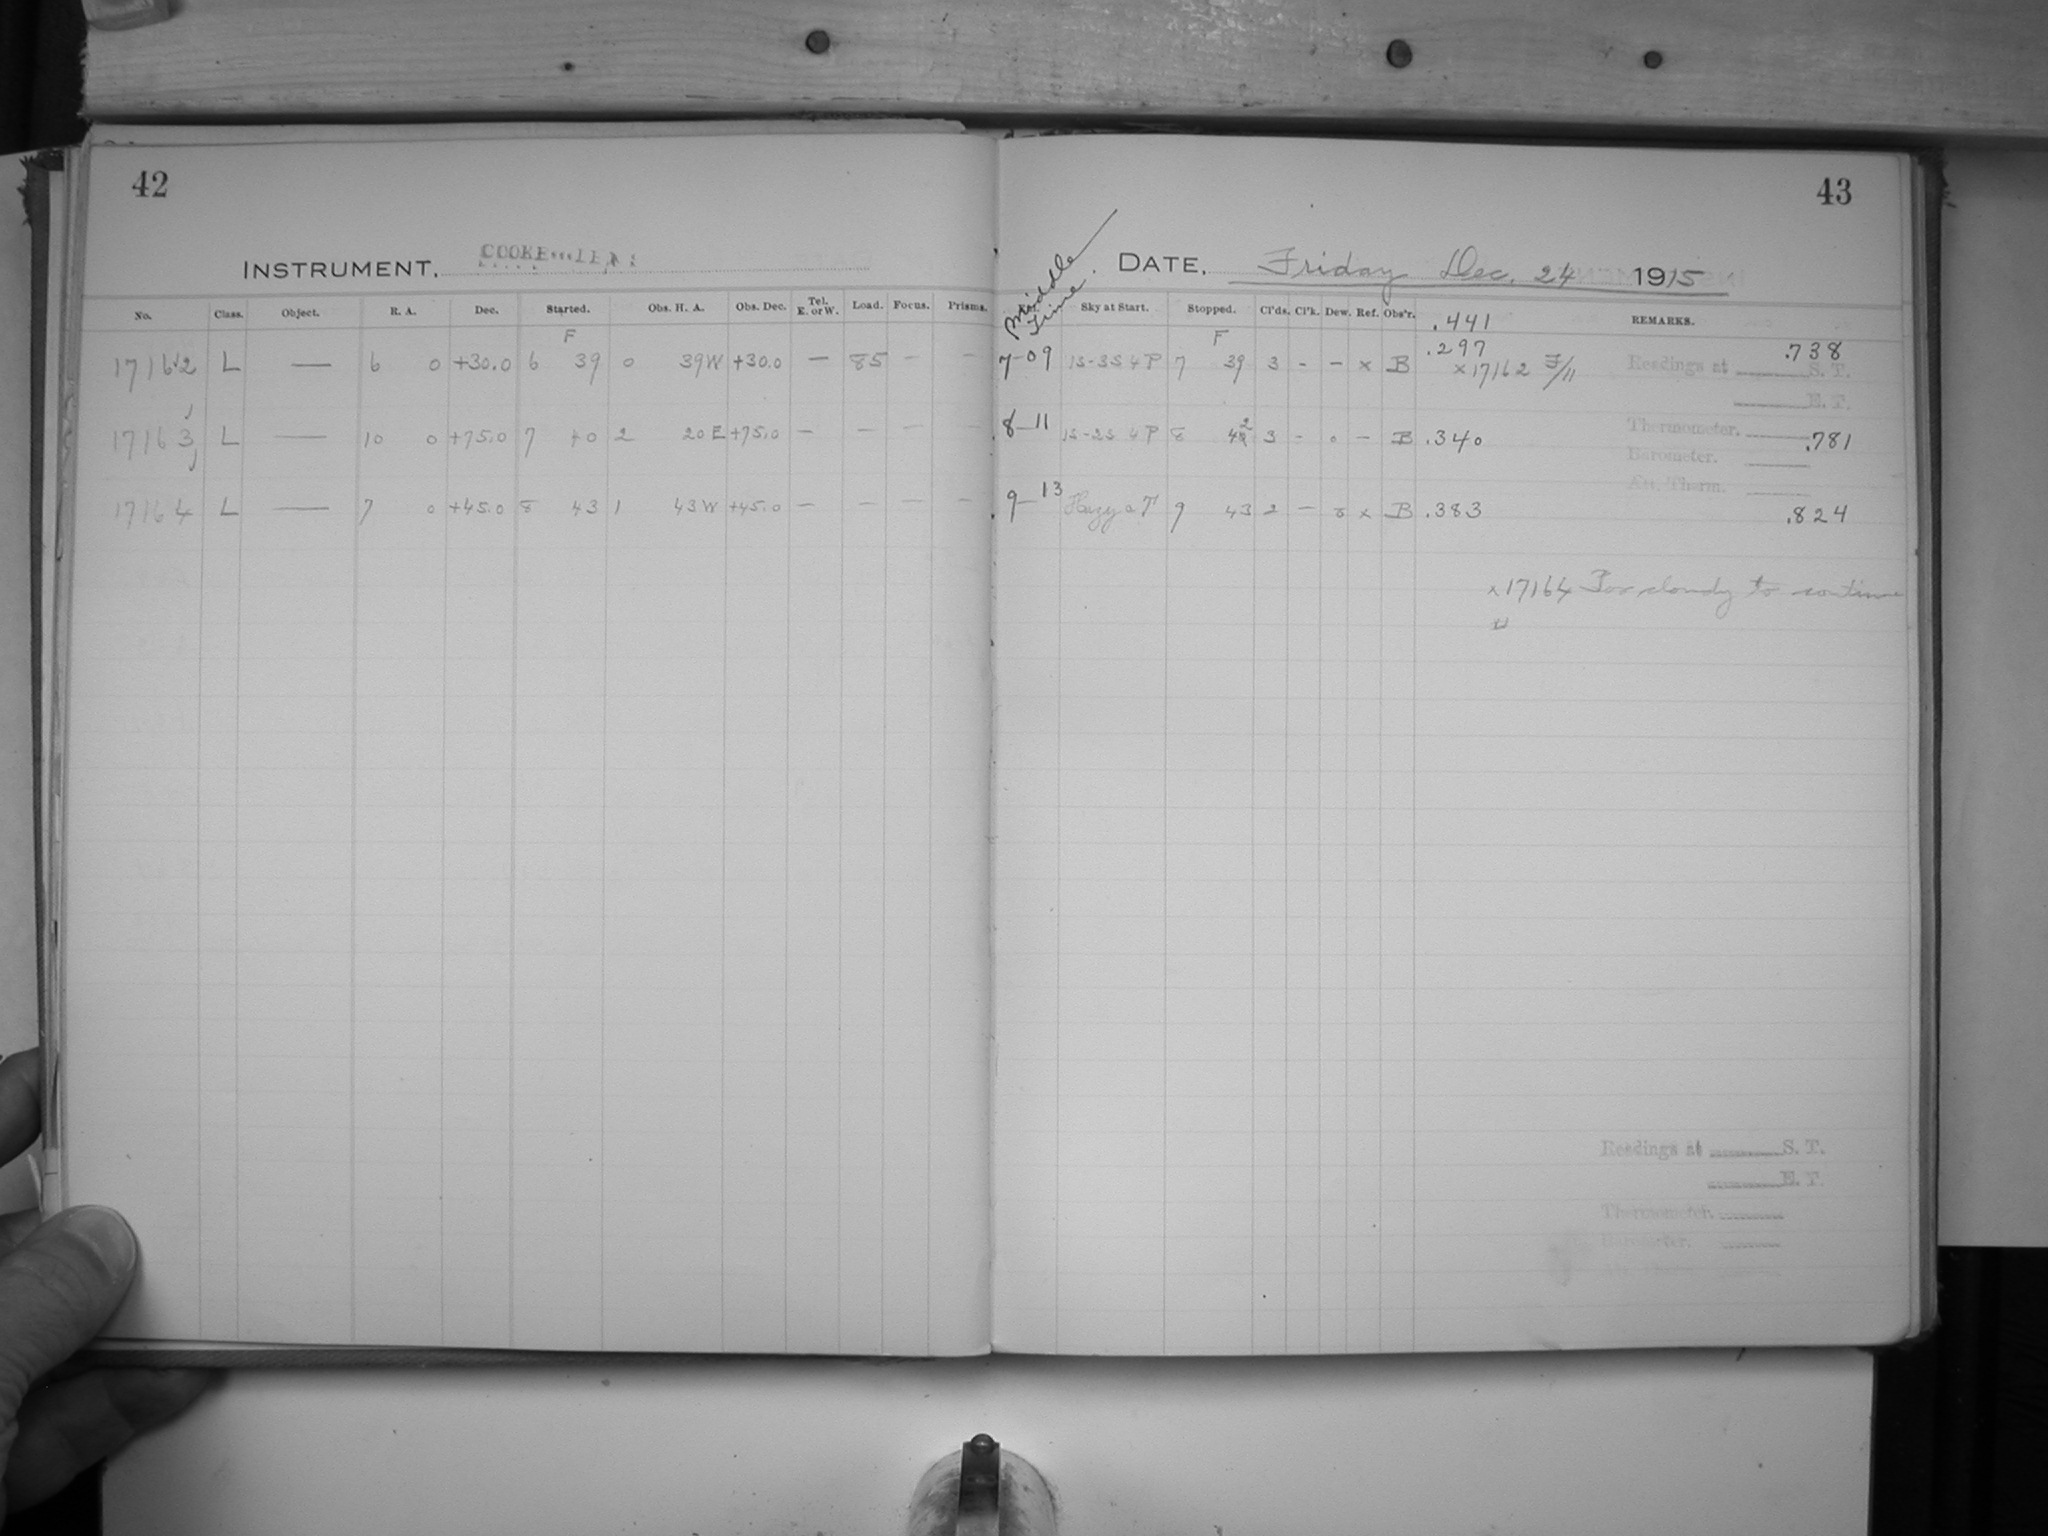 42
INSTRUMENT, COOKE LENS
No. Class. Object. R. A. Dec. Started. Obs. H. A. Obs. Dec. Tel. E. or W. Load. Focus. Prisms.
F
17162 L — 6 0 +30.0 6 39 0 39W +30.0 — 85 — —
17163 L — 10 0 +75.0 7 40 2 20E +75.0 — — — —
17164 L — 7 0 +45.0 8 43 1 43W +45.0 — — — —
43
Middle Time.
DATE, Friday Dec. 24 1915
Sky at Start. Stopped. Cl'ds. Cl'k. Dew. Ref. Obs'r. .441 REMARKS.
F
.297 .738
7-09 1S-3S 4 P 7 39 3 - - x B x17162 F/11
Readings at S. T.
E. T.
8-11 1S-2S 4 P 8 42 3 - 0 - B .340 .781
Thermometer.
Barometer.
Att. Therm.
9-13 Hazy a T 9 43 2 - 8 x B .383 .824
x17164 Too cloudy to continue
Readings at S. T.
E. T.
Thermometer.
Barometer.